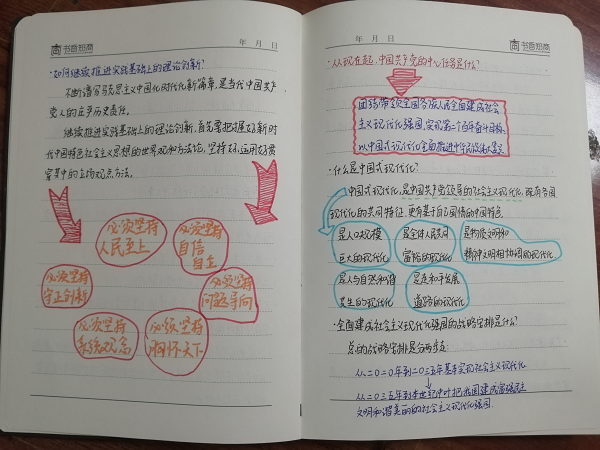 书香知商
年 月 日
·如何继续推进实践基础上的理论创新?
不断谱写马克思主义中国化时代化新篇章,是当代中国共产
党人的庄严历史责任。
继续推进实践基础上的理论创新,首先要把握好新时
代中国特色社会主义思想的世界观和方法论,坚持好、运用好贯
穿其中的立场观点方法。
必须坚持
人民至上
必须坚持
自信
自立
必须坚持
守正创新
必须坚持
问题导向
必须坚持
系统观念
必须坚持
胸怀天下
年 月 日
书香知商
·从现在起,中国共产党的中心任务是什么?
团结带领全国各族人民全面建成社会
主义现代化强国、实现第二个百年奋斗目标,
以中国式现代化全面推进中华民族伟大复兴
·什么是中国式现代化?
中国式现代化,是中国共产党领导的社会主义现代化,既有各国
现代化的共同特征,更有基于自己国情的中国特色
是人口规模
巨大的现代化
是全体人民共同
富裕的现代化
是物质文明和
精神文明相协调的现代化
是人与自然和谐
共生的现代化
是走和平发展
道路的现代化
·全面建成社会主义现代化强国的战略安排是什么?
总的战略安排是分两步走:
从二〇二〇年到二〇三五年基本实现社会主义现代化
从二〇三五年到本世纪中叶把我国建成富强民主
文明和谐美丽的社会主义现代化强国.